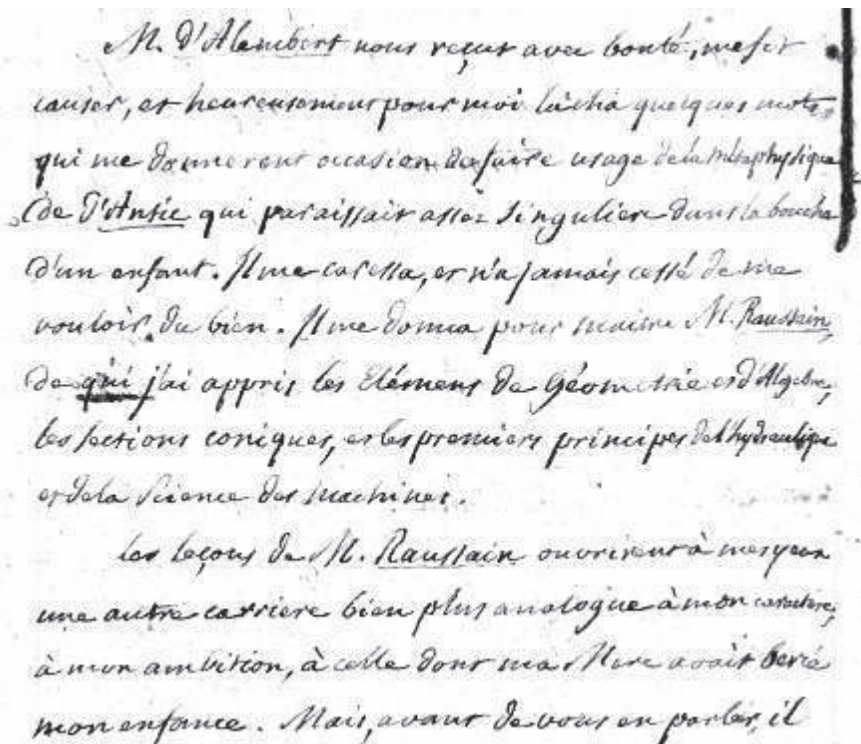 M. d'Alembert nous reçut avec bonté, me fit
causer, et heureusement pour moi lâcha quelques mots
qui me donnerent occasion de faire usage de la métaphysique
de d'Antic qui paraissait assez singuliere dans la bouche
d'un enfant. Il me caressa, et n'a jamais cessé de me
vouloir du bien. Il me donna pour maitre M. Raussain,
de qui j'ai appris les Elémens de Géometrie et d'Algebre,
les sections coniques, et les premiers principes de l'hydraulique
et de la Science des machines.
les leçons de M. Raussain ouvrirent à mes yeux
une autre carriere bien plus analogue à mon caractere,
à mon ambition, à celle dont ma Mere avait bercé
mon enfance. Mais, avant de vous en parler, il